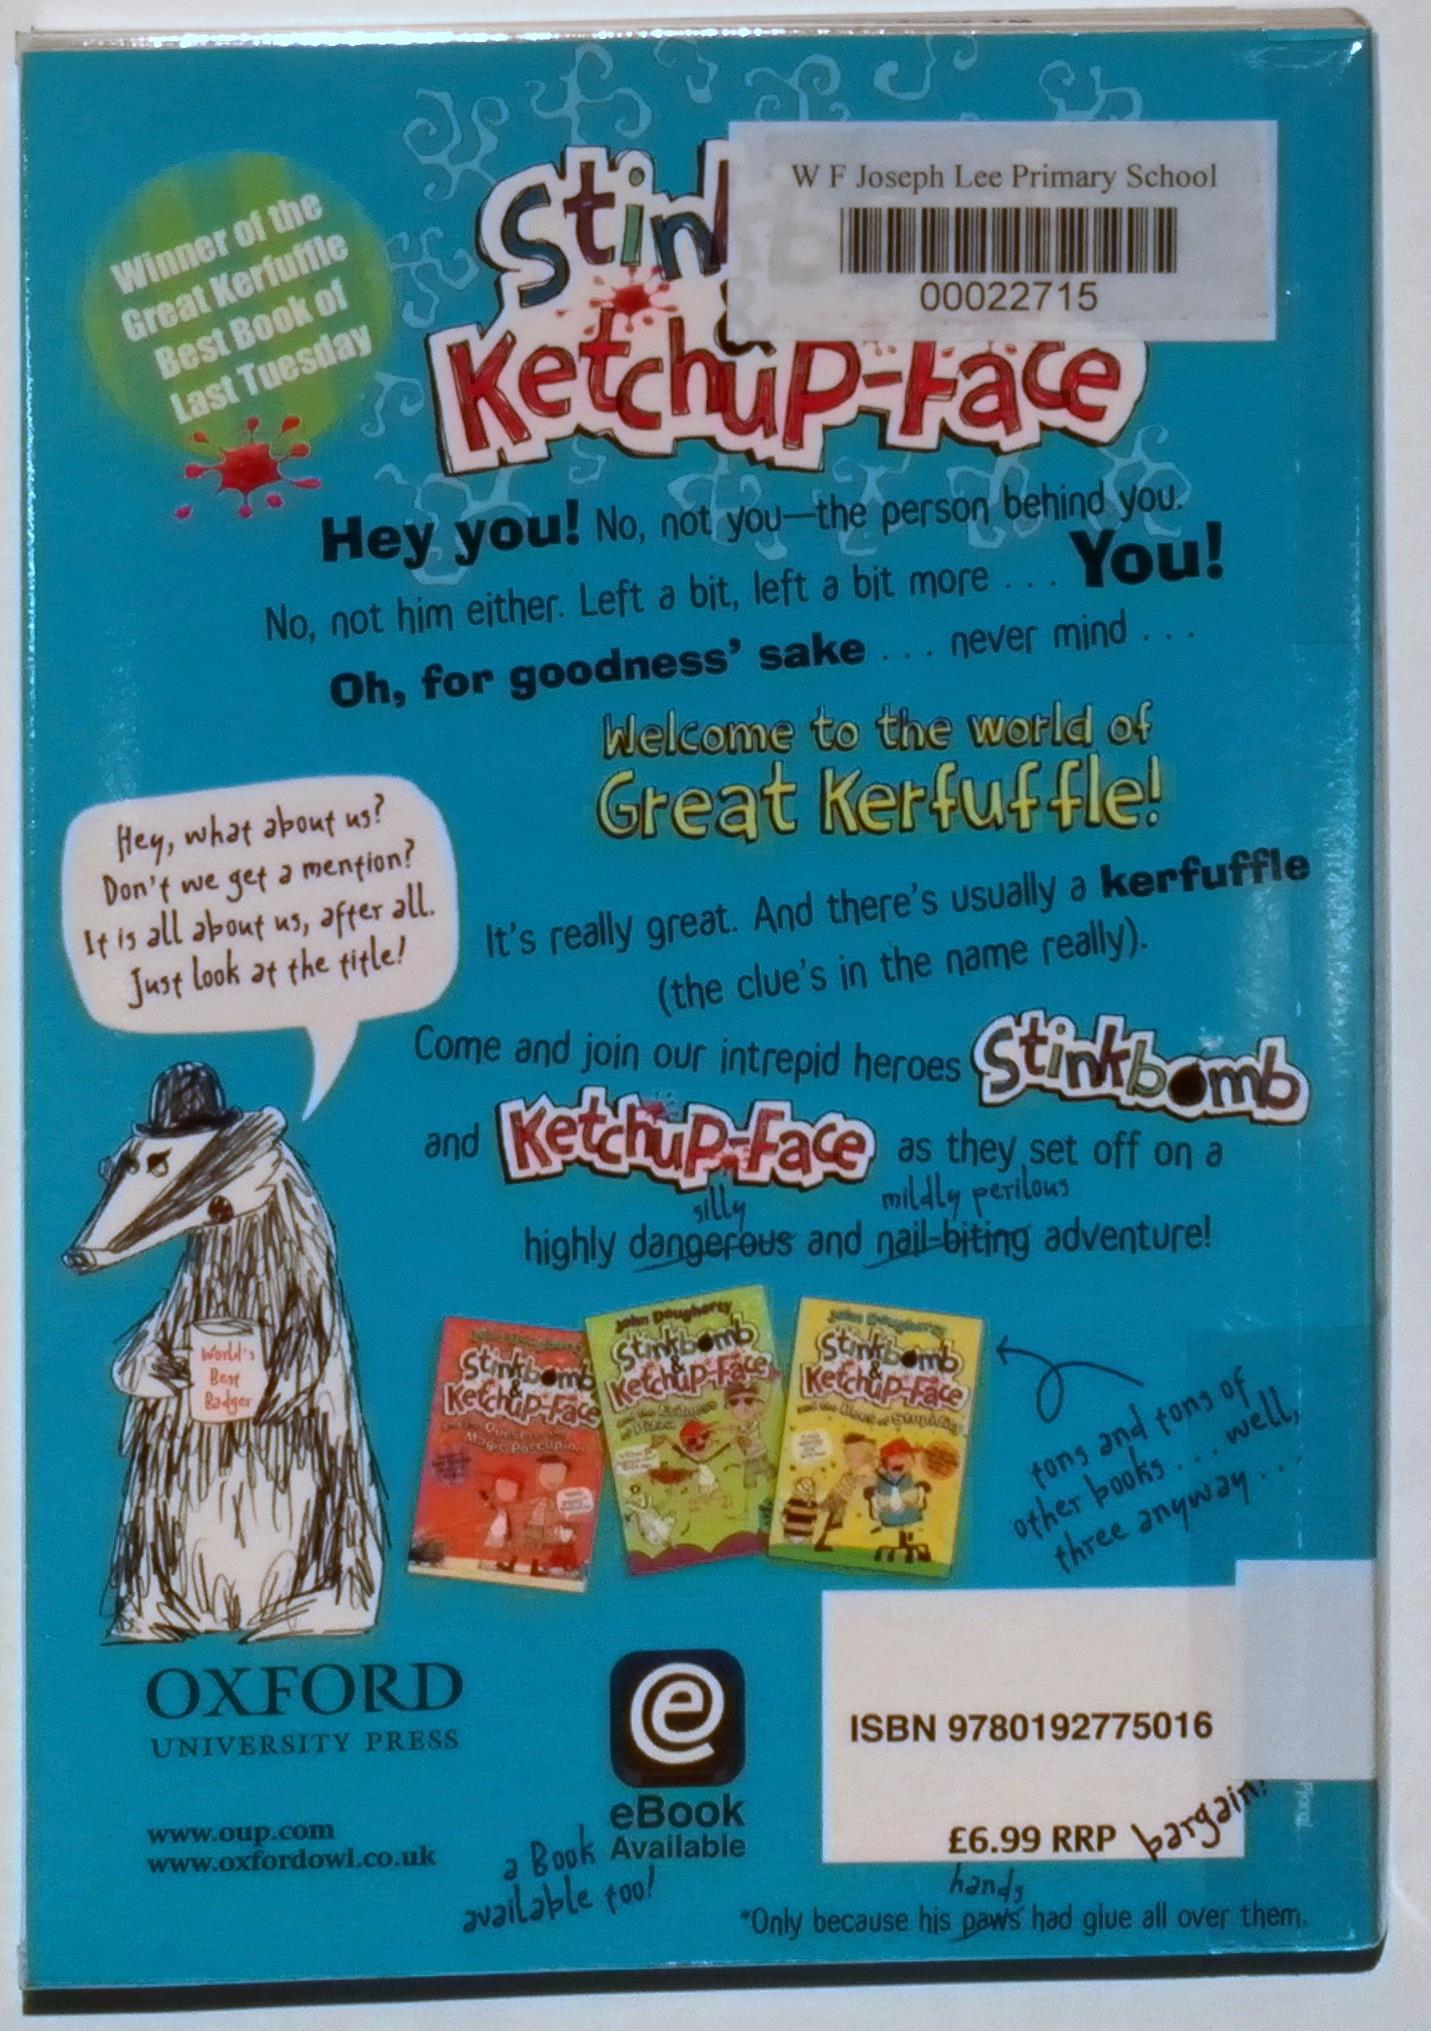 W F Joseph Lee Primary School
00022715
Winner of the
Great Kerfuffle
Best Book of
Last Tuesday
Ketchup-Face
Hey you! No, not you—the person behind you.
No, not him either. Left a bit, left a bit more . . . You!
Oh, for goodness' sake . . . never mind . . .
Welcome to the world of
Great Kerfuffle!
Hey, what about us?
Don't we get a mention?
It is all about us, after all.
Just look at the title!
It's really great. And there's usually a kerfuffle
(the clue's in the name really).
Come and join our intrepid heroes Stinkbomb
and Ketchup-Face as they set off on a
silly mildly perilous
highly dangerous and nail-biting adventure!
World's
Best
Badger
Stinkbomb
&
Ketchup-Face
John Dougherty
Stinkbomb
&
Ketchup-Face
John Dougherty
Stinkbomb
&
Ketchup-Face
tons and tons of
other books . . . well,
three anyway . . .
OXFORD
UNIVERSITY PRESS
www.oup.com
www.oxfordowl.co.uk
e
eBook
Available
a Book
available too!
ISBN 9780192775016
£6.99 RRP bargain!
hands
*Only because his paws had glue all over them.